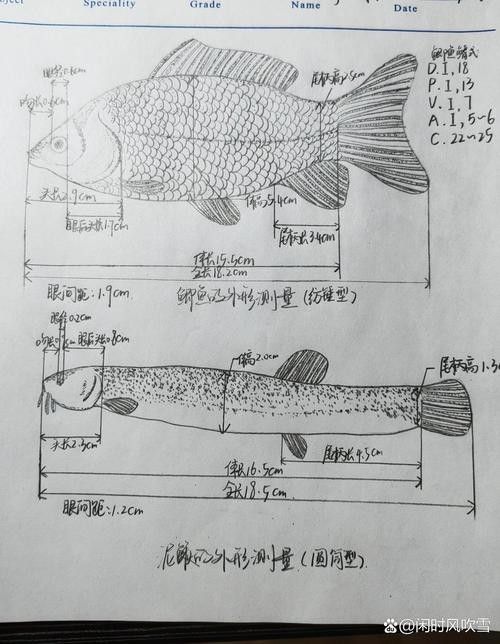 Speciality
Grade
Name
Date
鲫鱼鳍式
D.Ⅰ,18
P.Ⅰ,13
V.Ⅰ,7
A.Ⅰ,5~6
C.22~25
吻长0.6cm
头长2.9cm
眼后头长1.7cm
体高5.4cm
尾柄长3.4cm
体长15.5cm
全长18.2cm
眼间距:1.9cm
鲫鱼的外形测量(纺锤型)
眼径0.2cm
眼后头长0.8cm
体高2.0cm
尾柄高1.3c
头长2.3cm
尾柄长4.5cm
体长16.5cm
全长18.5cm
眼间距:1.2cm
泥鳅的外形测量(圆筒型)
@闲时风吹雪